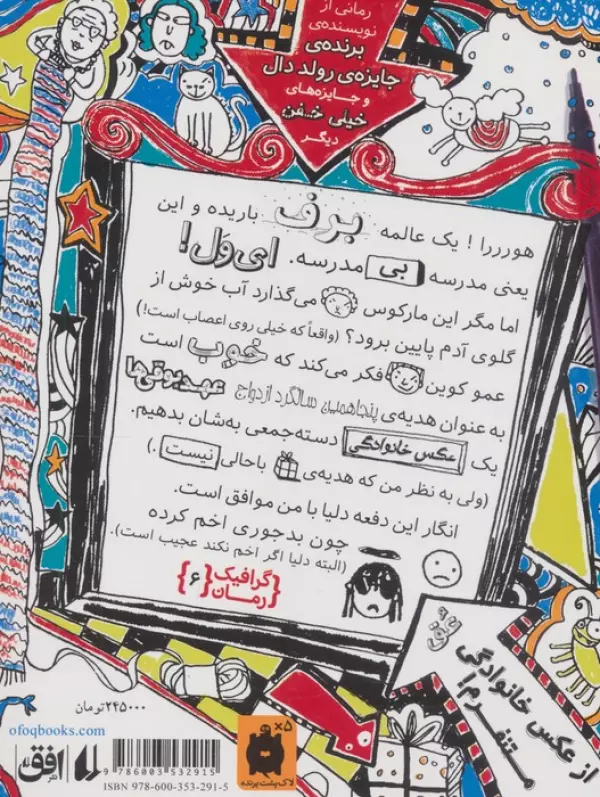 رمانی از
نویسنده‌ی
برنده‌ی
جایزه‌ی رولد دال
و جایزه‌های
خیلی خفن
دیگر
هوررررا ! یک عالمه برف باریده و این
یعنی مدرسه بی مدرسه. ای‌وَل!
اما مگر این مارکوس می‌گذارد آب خوش از
گلوی آدم پایین برود؟ (واقعاً که خیلی روی اعصاب است!)
عمو کوین فکر می‌کند که خوب است
به عنوان هدیه‌ی پنجاهمین سالگرد ازدواج عهدبوقی‌ها
یک عکس خانوادگی دسته‌جمعی به‌شان بدهیم.
(ولی به نظر من که هدیه‌ی باحالی نیست.)
انگار این دفعه دلیا با من موافق است.
چون بدجوری اخم کرده
(البته دلیا اگر اخم نکند عجیب است).
گرافیک
رمان
{۶}
از عکس خانوادگی
متنفرم!
۲۴۵۰۰۰ تومان
ofoqbooks.com
نشر افق
9 786003 532915
ISBN 978-600-353-291-5
×۵
لاک‌پشت پرنده